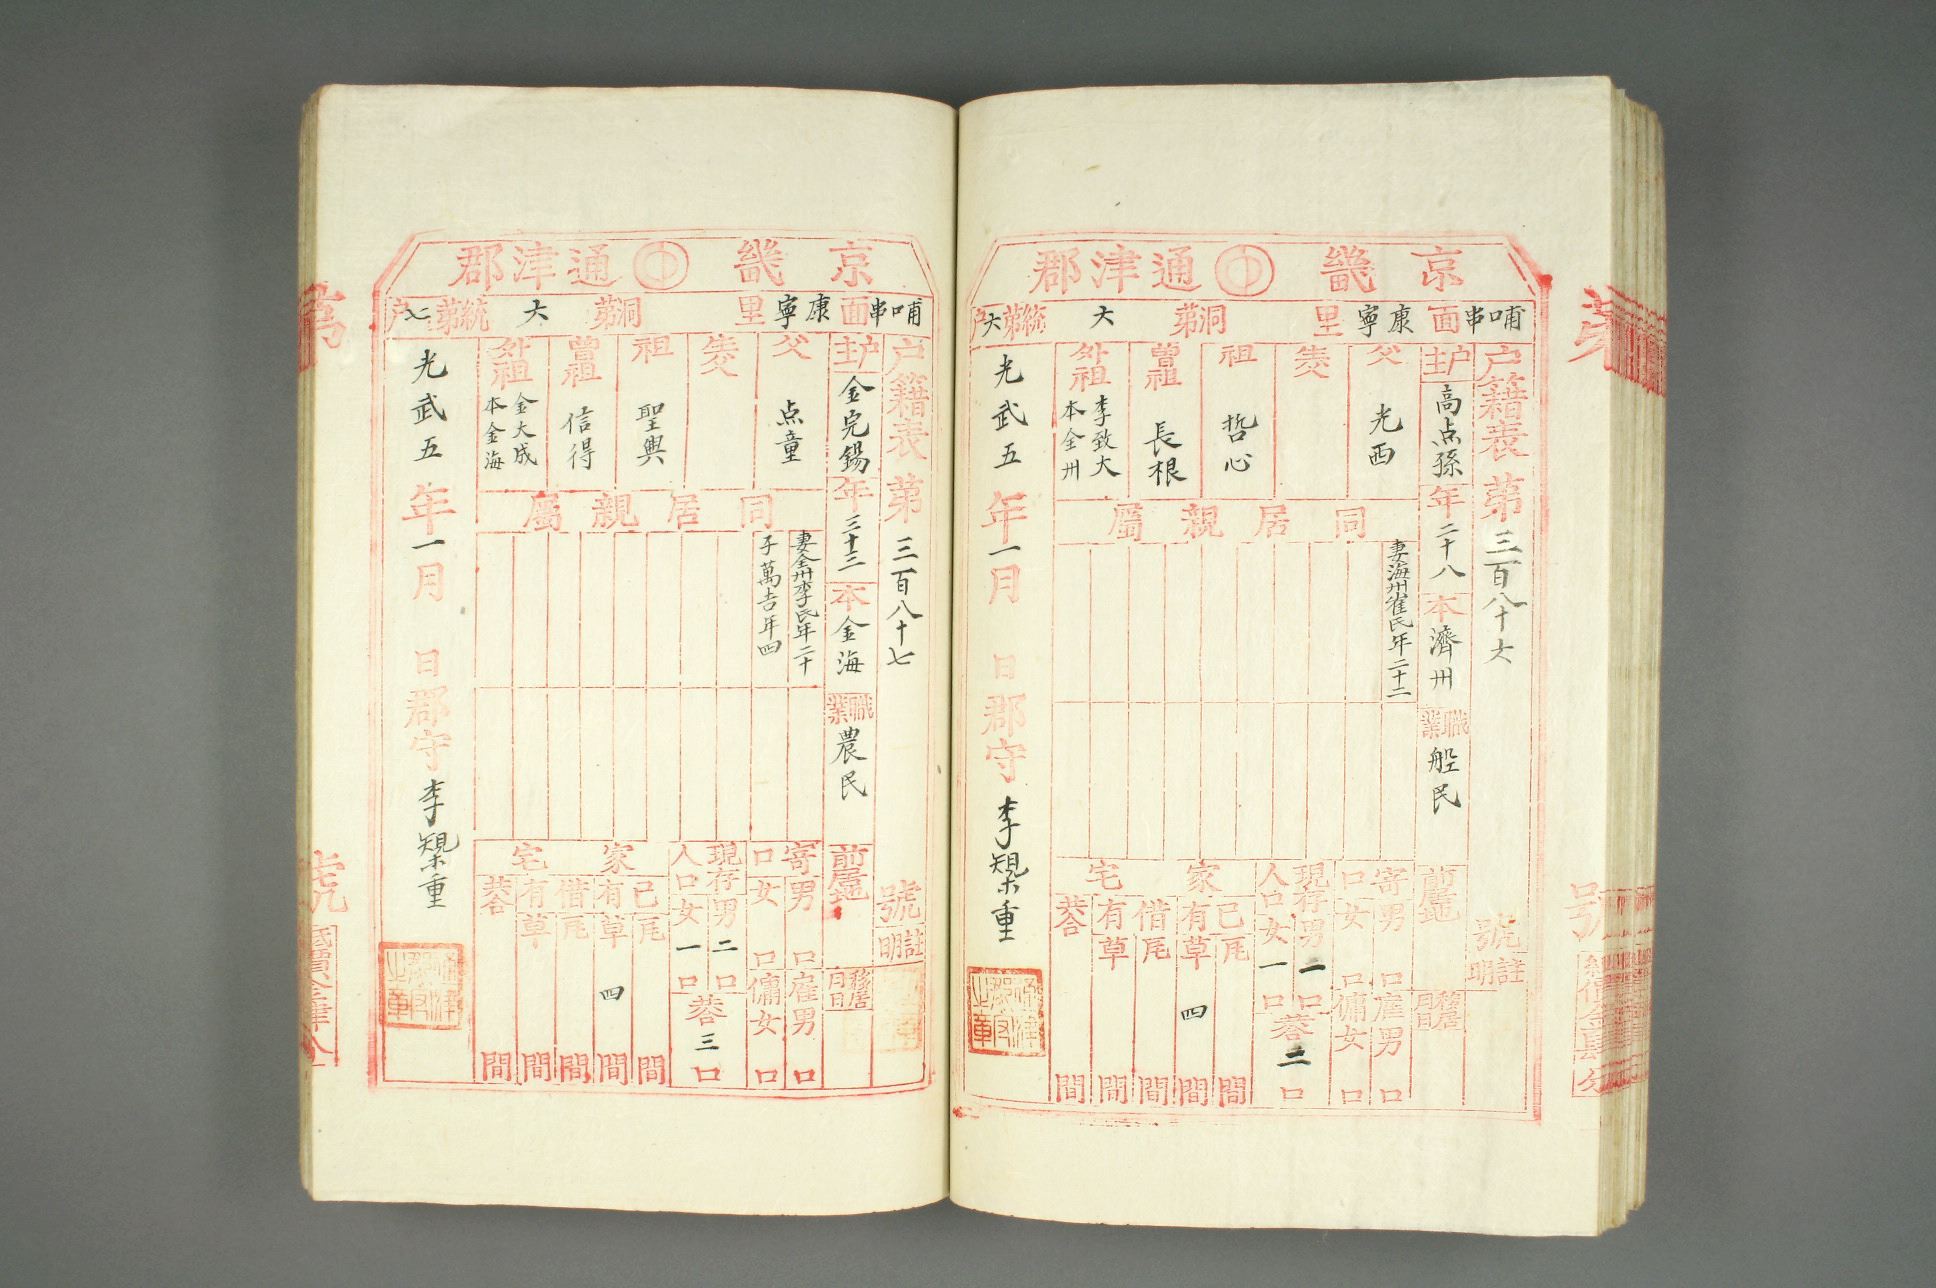 京畿 通津郡
哺串面 康寧里 洞第 六 統第六戶
戶籍表第 三百八十六 號
註明
戶主 高点孫 年 二十八 本 濟州 職業 船民 前居地
移居月日
父 光西
生父
祖 哲心
曾祖 長根
外祖 李致大 本全州
同居親屬
妻海州崔氏年二十二
寄口 男 口 女 口
雇男 口
傭女 口
現存人口 男 一 口 女 一 口
共 二 口
家宅
己有 瓦 間
草 四 間
借有 瓦 間
草 間
共 間
光武五年一月 日 郡守 李槼重
京畿 通津郡
哺串面 康寧里 洞第 六 統第七戶
戶籍表第 三百八十七 號
註明
戶主 金完錫 年 三十三 本 金海 職業 農民 前居地
移居月日
父 点童
生父
祖 聖興
曾祖 信得
外祖 金大成 本金海
同居親屬
妻全州李氏年二十
子萬吉年四
寄口 男 口 女 口
雇男 口
傭女 口
現存人口 男 二 口 女 一 口
共 三 口
家宅
己有 瓦 間
草 四 間
借有 瓦 間
草 間
共 間
光武五年一月 日 郡守 李槼重